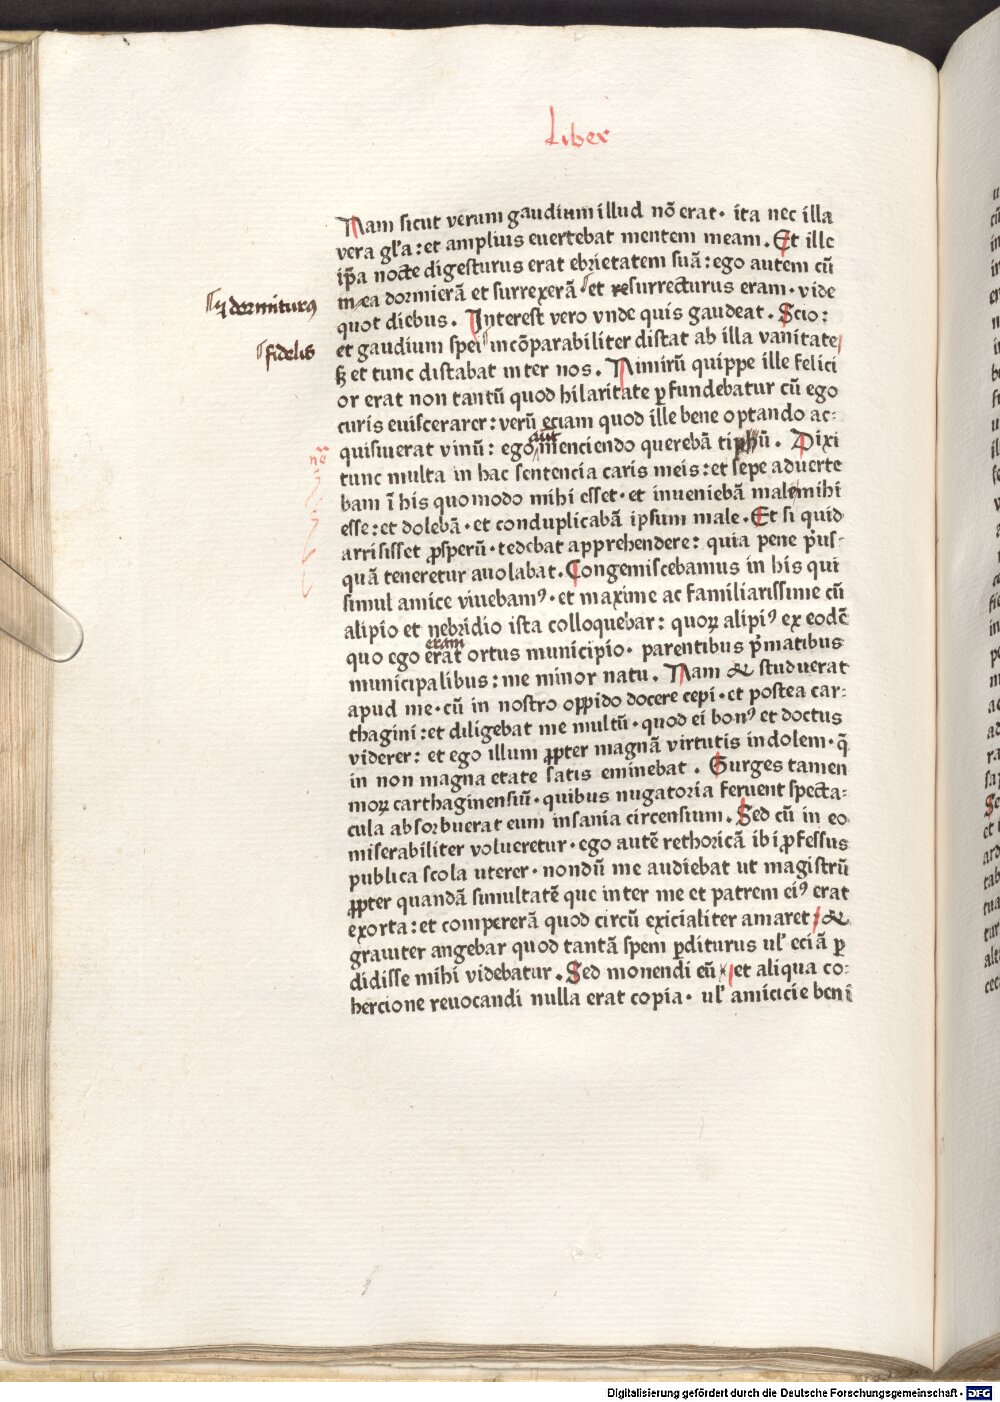 Liber
Nam sicut verum gaudium illud nō erat· ita nec illa
vera gl'a: et amplius euertebat mentem meam. Et ille
ip̄a nocte digesturus erat ebrietatem suā: ego autem cū
mea dormierā et surrexerā et resurrecturus eram· vide
quot diebus. Interest vero vnde quis gaudeat. Scio:
et gaudium spei incōparabiliter distat ab illa vanitate
ꜩ et tunc distabat inter nos. Nimirū quippe ille felici
or erat non tantū quod hilaritate ꝑfundebatur cū ego
curis euiscerarer: verū eciam quod ille bene optando ac:
quisiuerat vinū: ego menciendo querebā tiphū. Dixi
aūt
tunc multa in hac sentencia caris meis: et sepe aduerte
bam ī his quomodo mihi esset· et inueniebā male mihi
esse: et dolebā· et conduplicabā ipsum male. Et si quid
arrisisset ꝓsperū· tedebat apprehendere: quia pene p̄us:
quā teneretur auolabat. Congemiscebamus in his qui
simul amice viuebamꝰ· et maxime ac familiarissime cū
alipio et nebridio ista colloquebar: quoꝝ alipiꝰ ex eodē
quo ego erat ortus municipio· parentibus p̄matibus
eram
municipalibus: me minor natu. Nam & studuerat
apud me· cū in nostro oppido docere cepi· et postea car:
thagini: et diligebat me multū· quod ei bonꝰ et doctus
viderer: et ego illum ꝓpter magnā virtutis indolem· q̄
in non magna etate satis eminebat. Gurges tamen
moꝝ carthaginensiū· quibus nugatoria feruent specta:
cula absorbuerat eum insania circensium. Sed cū in eo
miserabiliter volueretur· ego autē rethoricā ibi ꝓfessus
publica scola uterer· nondū me audiebat ut magistrū
ꝓpter quandā simultatē que inter me et patrem eiꝰ erat
exorta: et compererā quod circū exicialiter amaret: &
grauiter angebar quod tantā spem ꝑditurus ul' eciā ꝑ
didisse mihi videbatur. Sed monendi eū et aliqua co:
hercione reuocandi nulla erat copia· ul' amicicie beni
ꝙ dormiturꝰ
fidelis
nō
Digitalisierung gefördert durch die Deutsche Forschungsgemeinschaft - DFG